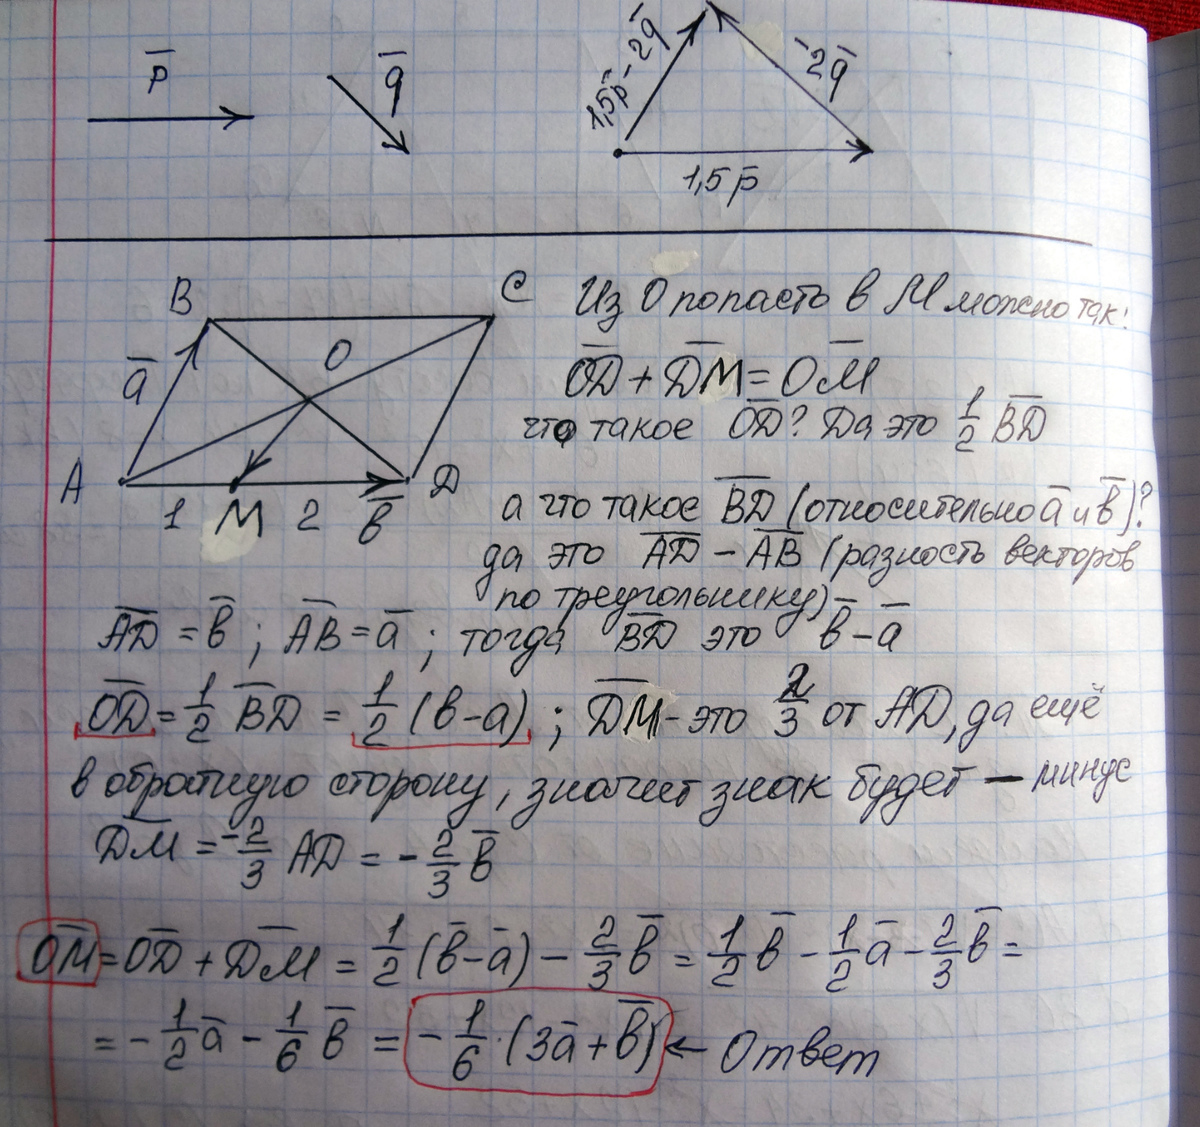 p̅
q̅
1,5p̅ - 2q̅
-2q̅
1,5p̅
B
C
a̅
O
A
D
1 M 2 b̅
Из O попасть в M можно так:
O̅D̅ + D̅M̅ = O̅M̅
что такое O̅D̅? Да это 1/2 B̅D̅
а что такое B̅D̅ (относительно a̅ и b̅)?
да это A̅D̅ - A̅B̅ (разность векторов
по треугольнику)
A̅D̅ = b̅; A̅B̅ = a̅; тогда B̅D̅ это b̅ - a̅
O̅D̅ = 1/2 B̅D̅ = 1/2 (b-a); D̅M̅ - это 2/3 от AD, да ещё
в обратную сторону, значит знак будет — минус
D̅M̅ = -2/3 AD = -2/3 b̅
O̅M̅ = O̅D̅ + D̅M̅ = 1/2 (b̅-a̅) - 2/3 b̅ = 1/2 b̅ - 1/2 a̅ - 2/3 b̅ =
= -1/2 a̅ - 1/6 b̅ = -1/6 · (3a̅ + b̅) ← Ответ